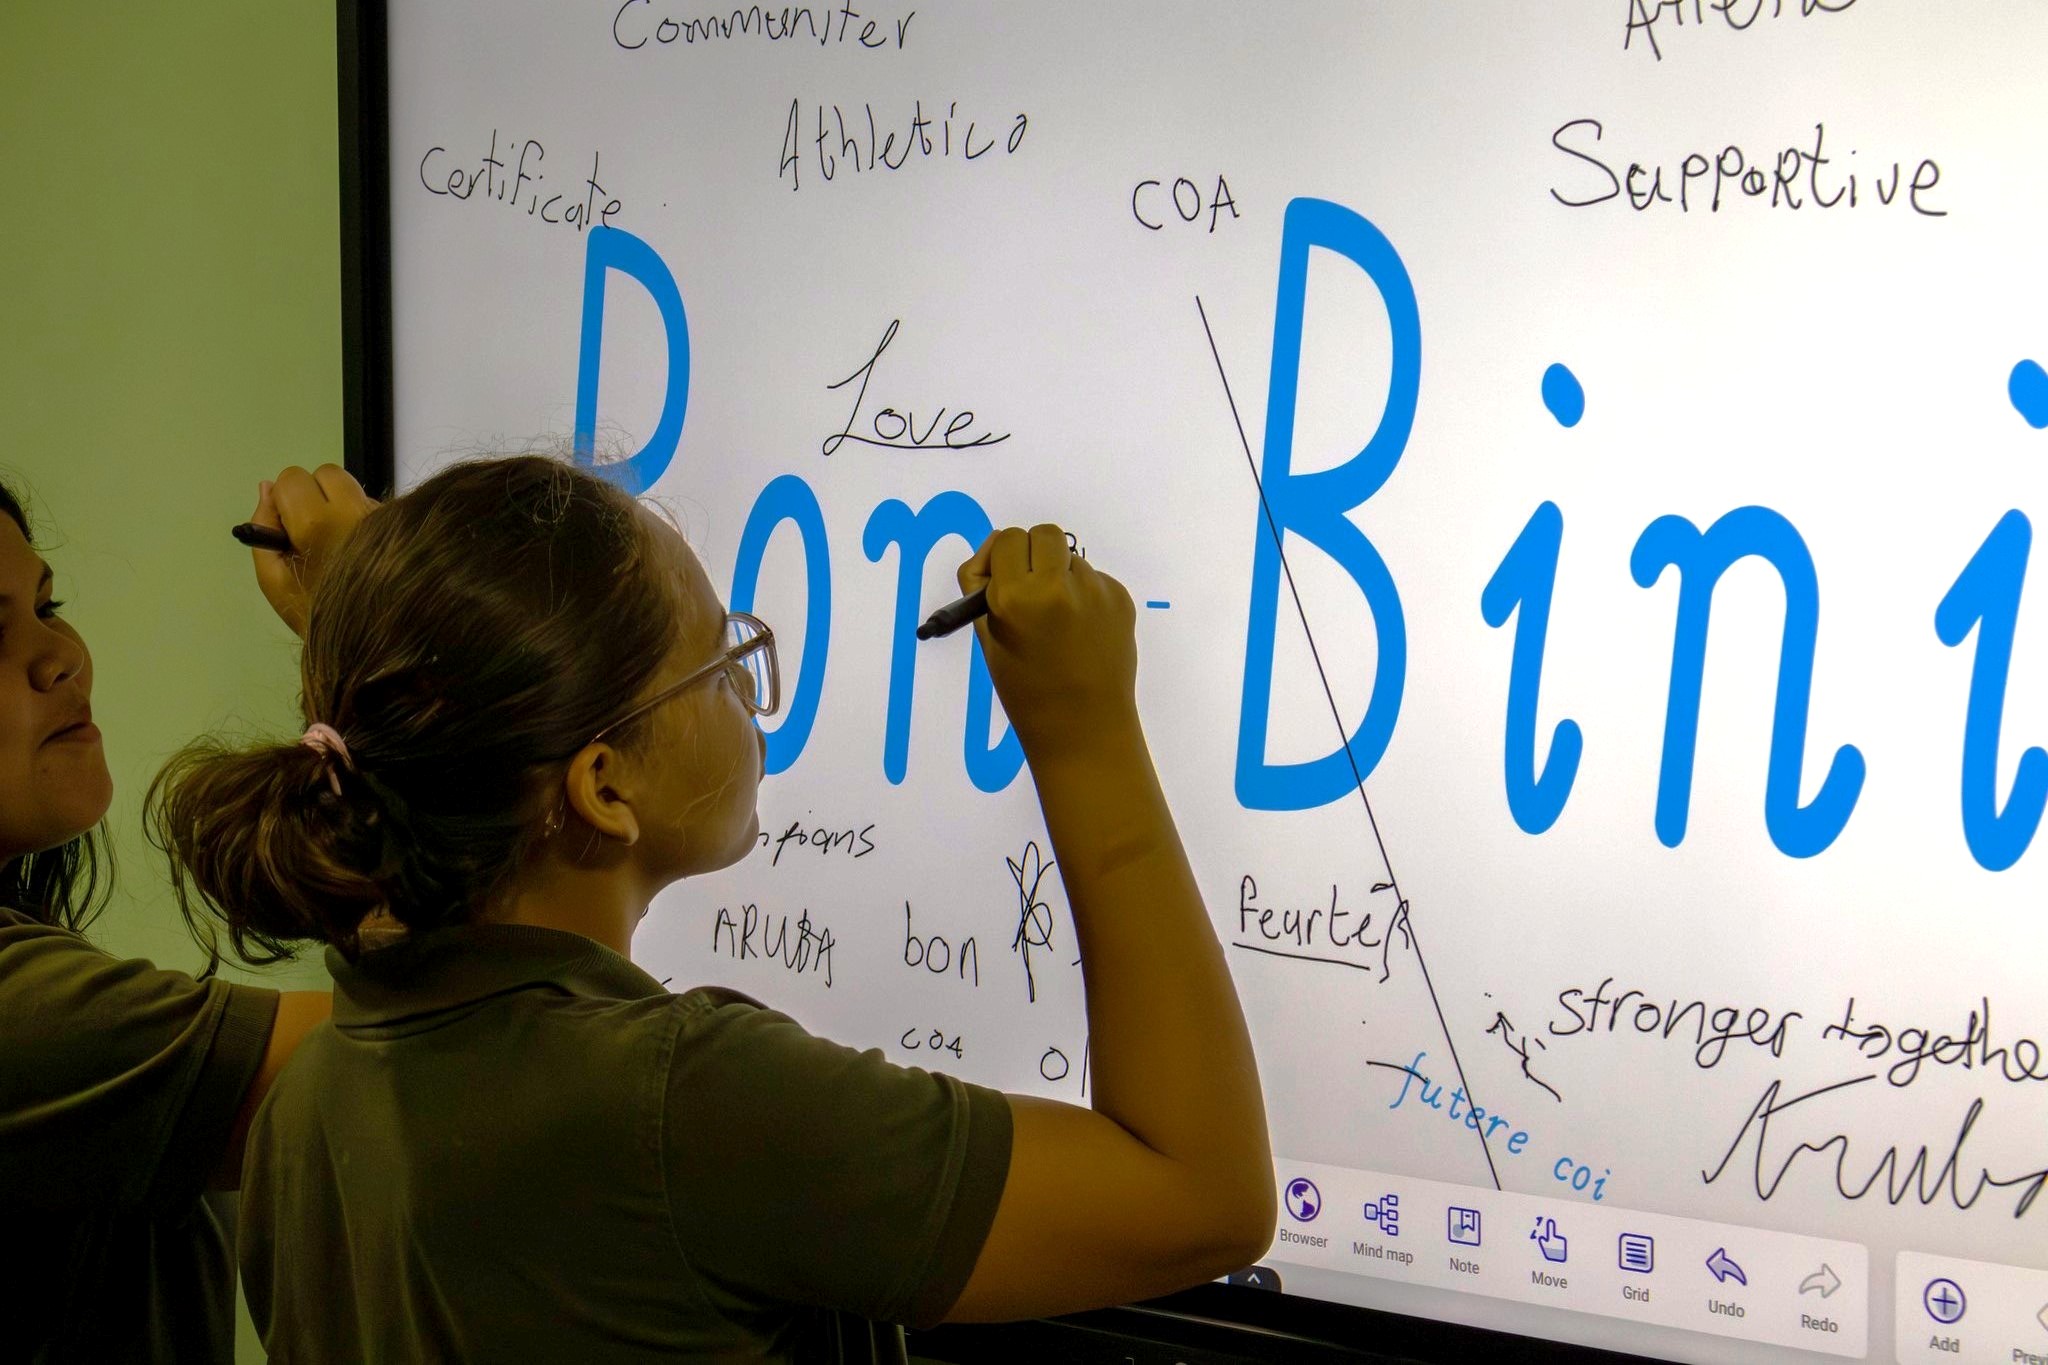 Communiter
Athletico
Certificate
COA
Supportive
Love
Bon-Bini
ARUBA bon
COA
stronger togethe
Aruba
futere coi
Browser
Mind map
Note
Move
Grid
Undo
Redo
Add